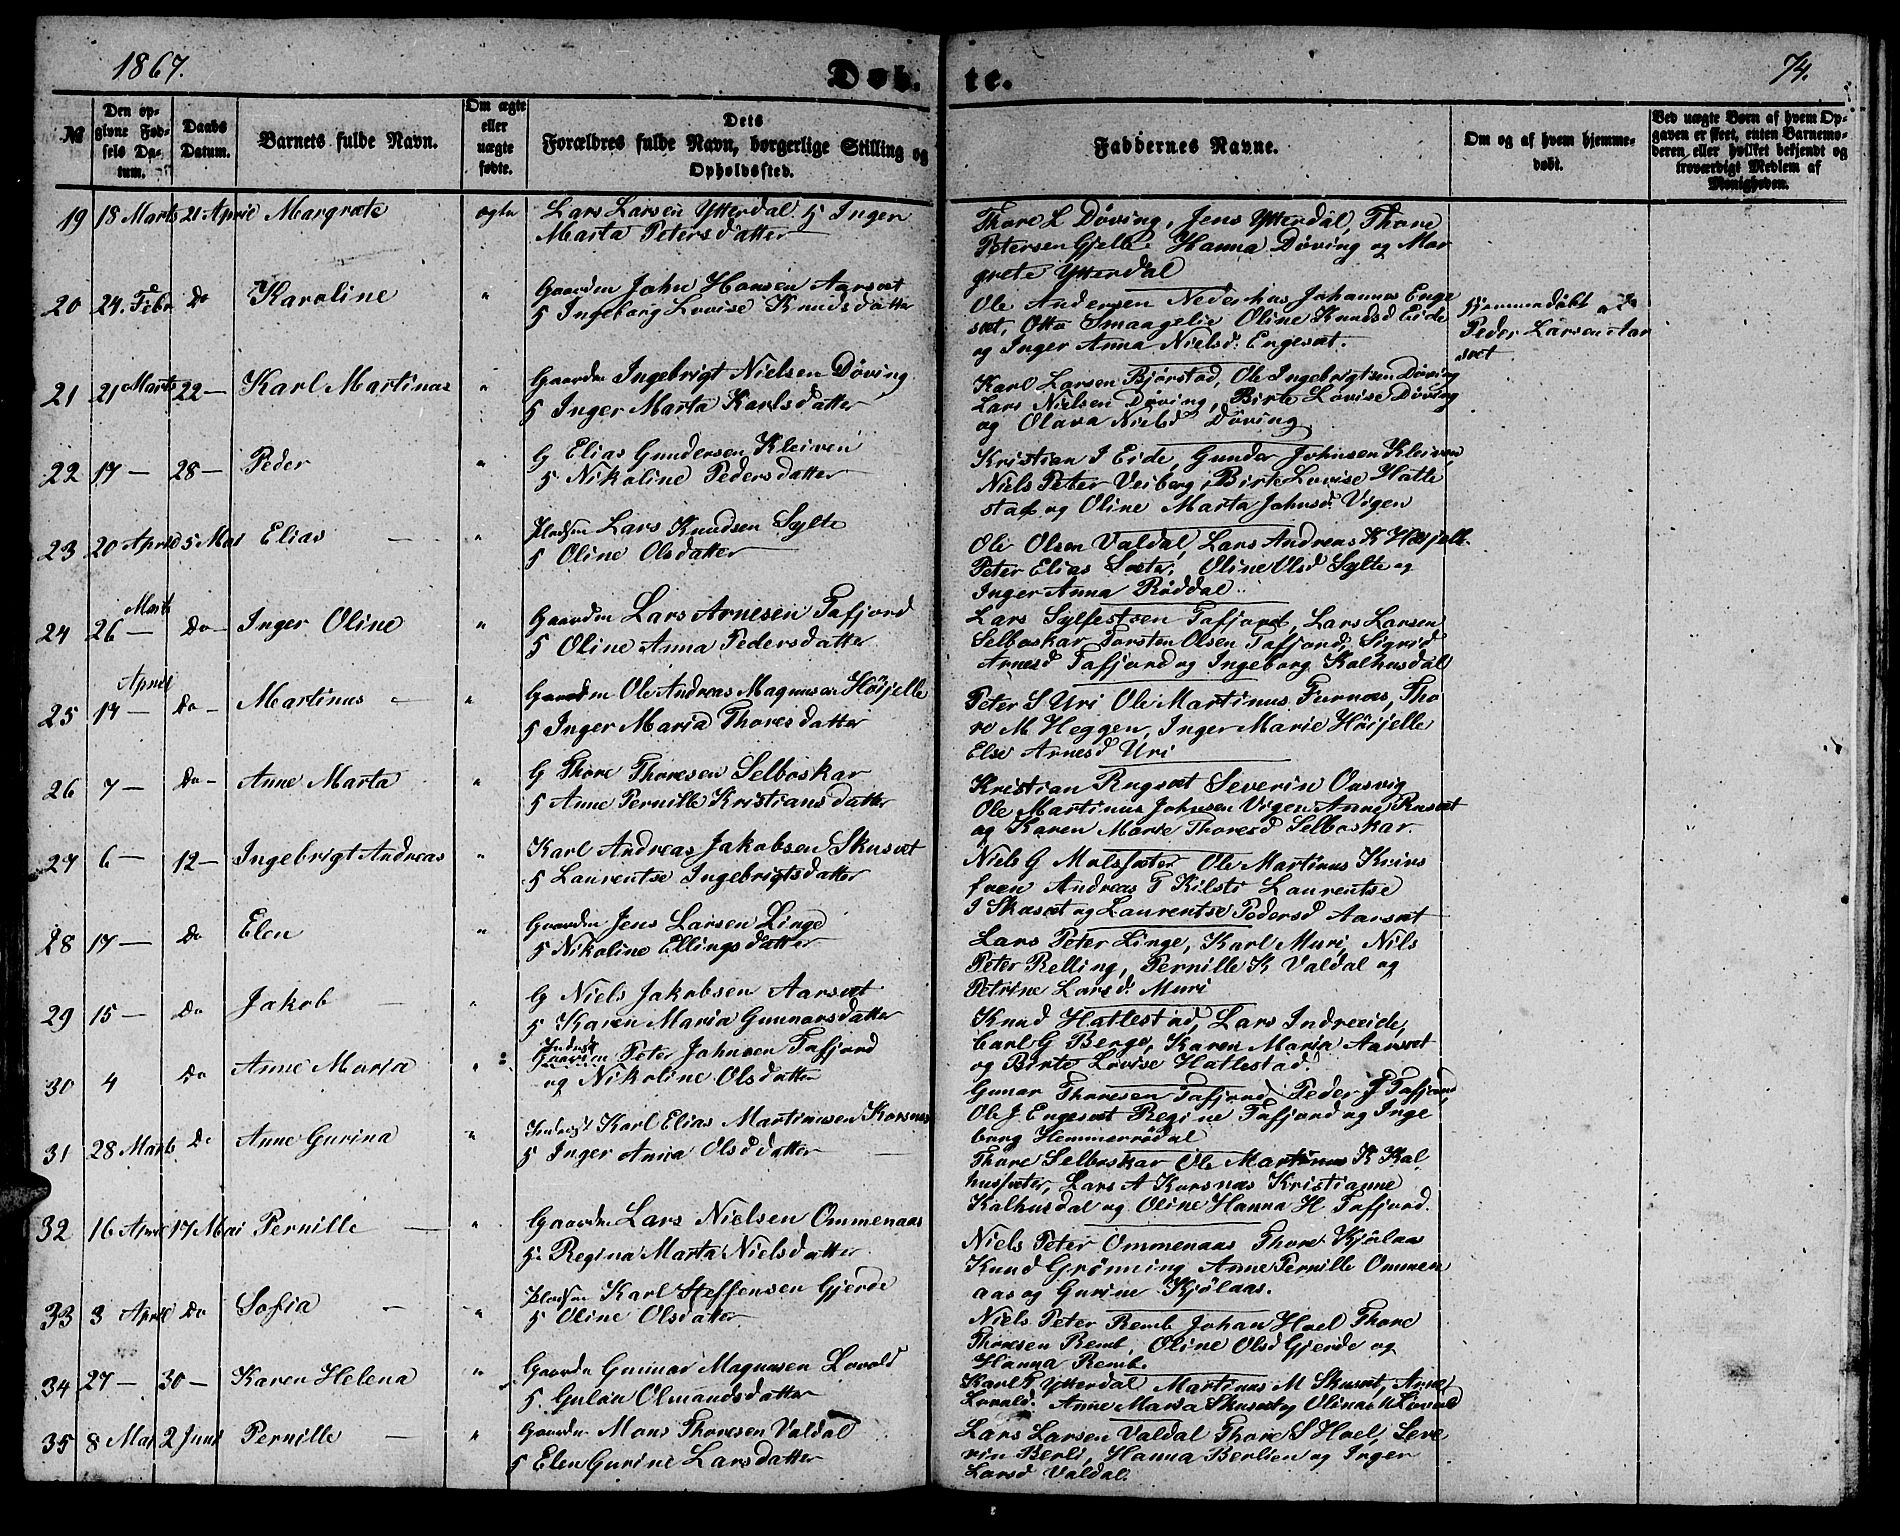 1867.
Døb-
te.
74.
№
Den op-
givne Fød-
sels Da-
tum.
Daabs
Datum.
Barnets fulde Navn.
Om ægte
eller
uægte
fødte.
Dets
Forældres fulde Navn, borgerlige Stilling og
Opholdssted.
Faddernes Navne.
Om og af hvem hjemme-
døbt.
Ved uægte Børn af hvem Op-
gaven er skeet, enten Barnemo-
deren eller hvilket bekjendt og
troværdigt Medlem af
Menigheden.
19 18 Marts 21 April Margrete ægte Lars Larsen Ytterdal. H Inger
Marta Petersdatter
Thore L Døving, Jens Ytterdal, Thore
Petersen Gjelle Hanna Døving og Mar
grete Ytterdal
20 24. Febr Do Karoline " Gaardm John Hansen Aarset
H Ingeborg Lovise Knudsdatter
Ole Andersen Nederhus Johannes Enge
sæt, Otto Smaagelie Oline Knudsd Eide
og Inger Anna Nielsd: Engesæt.
Hjemmedøbt af
Peder Larsen Aar
sæt
21 21 Marts 22 — Karl Martinus " Gaardm Ingebrigt Nielsen Døving
H Inger Marta Karlsdatter
Karl Larsen Bjørstad, Ole Ingebrigtsen Døving
Lars Nielsen Døving, Birte Lovise Døving
og Olava Nielsd Døving
22 17 — 28 — Peder " G Elias Gundersen Kleiven
H Nikoline Pedersdatter
Kristian I Eide, Gunder Johnsen Kleiven
Niels Peter Veiberg, Birte Lovise Hatle
stad og Oline Marta Johnsd Vigen
23 20 April 5 Mai Elias — " Pladsm Lars Knudsen Sylte
H Oline Olsdatter
Ole Olsen Valdal, Lars Andreas K Høijell.
Peter Elias Sæter, Oline Olsd Sylte og
Inger Anna Røddal
24 26 Marts — Do — Inger Oline " Gaardm Lars Arnesen Tafjord
H Oline Anna Pedersdatter
Lars Sylfestsen Tafjord, Lars Larsen
Selboskar Torsten Olsen Tafjord, Sigrid
Arnesd Tafjord og Ingeborg Kalhusdal
25 14 April — Do — Martinus — " Gaardm Ole Andreas Magnusen Høijelle
H Inger Maria Thoresdatter
Peter S Uri Ole Martinus Furnæs, Tho
re M Heggen, Inger Marie Høijelle
Else Arnesd Uri
26 7 — Do — Anne Marta " G Thore Thoresen Selboskar
H Anne Pernille Kristiansdatter
Kristian Rugsæt Severin Omsvig
Ole Martinus Johnsen Vigen Anne Rusæt
og Karen Marie Thoresd Selboskar.
27 6 — 12 — Ingebrigt Andreas " Karl Andreas Jakobsen Skusæt
H Laurentse Ingebrigtsdatter
Niels G Molsæter Ole Martinus
Andreas T Kilsti Laurentse
I Skusæt og Laurentse Pedersd Aarsæt
28 17 — Do Elen " Gaardm Jens Larsen Linge
H Nikoline Ellingsdatter
Lars Peter Linge, Karl Muri, Nils
Peter Relling, Pernille K Valdal og
Petrine Larsd. Muri
29 15 — Do Jakob — " G Niels Jakobsen Aarsæt
H Karen Maria Gunnarsdatter
Knud Hatlestad, Lars Indreeide,
Carl G Berge, Karen Maria Aarsæt
og Birte Lovise Hatlestad.
30 4 Do Anne Marja " Inderst Gaardm Peter Johnsen Tafjord
og Nikoline Olsdatter
Gunar Thoresen Tafjord, Peder J Tafjord
Ole J. Engesæt Regine Tafjord og Inge
borg Hemmerrødal
31 28 Marts Do Anne Gurina " Inderst Karl Elias Martinusen Korsnæs
H Inger Anna Olsddatter —
Thore Selboskar Ole Martinus K Kal
husæter, Lars A Korsnæs Kristianne
Kalhusdal og Oline Hanna H Tafjord.
32 16 April 17 Mai Pernille — " Gaardm Lars Nielsen Ommenaas
H. Regina Marta Nielsdatter
Niels Peter Ommenaas Thore Kjølaas
Knud Grønning Anne Pernille Ommen
aas og Gurine Kjølaas.
33 3 April Do Sofia — " Pladsm Karl Steffensen Gjerde
H Oline Olsdatter
Niels Peter Remb Johan Hoel Thore
Thoresen Remb, Oline Olsd Gjerde og
Hanna Remb.
34 27 — 30 — Karen Helena " Gaardm Gunnar Magnusen Lovald
H. Gulan Olmandsdatter
Karl T Ytterdal Martinus M Skusæt, Arne
Lovald. Anne Maria Skusæt og Olina Lovald
35 8 Mai 2 Juni Pernille — " Gaardm Mons Thoresen Valdal
H Elen Gurine Larsdatter
Lars Larsen Valdal Thore S Hoel, Seve
rin Berli, Hanna Berlien og Inger
Larsd Valdal.